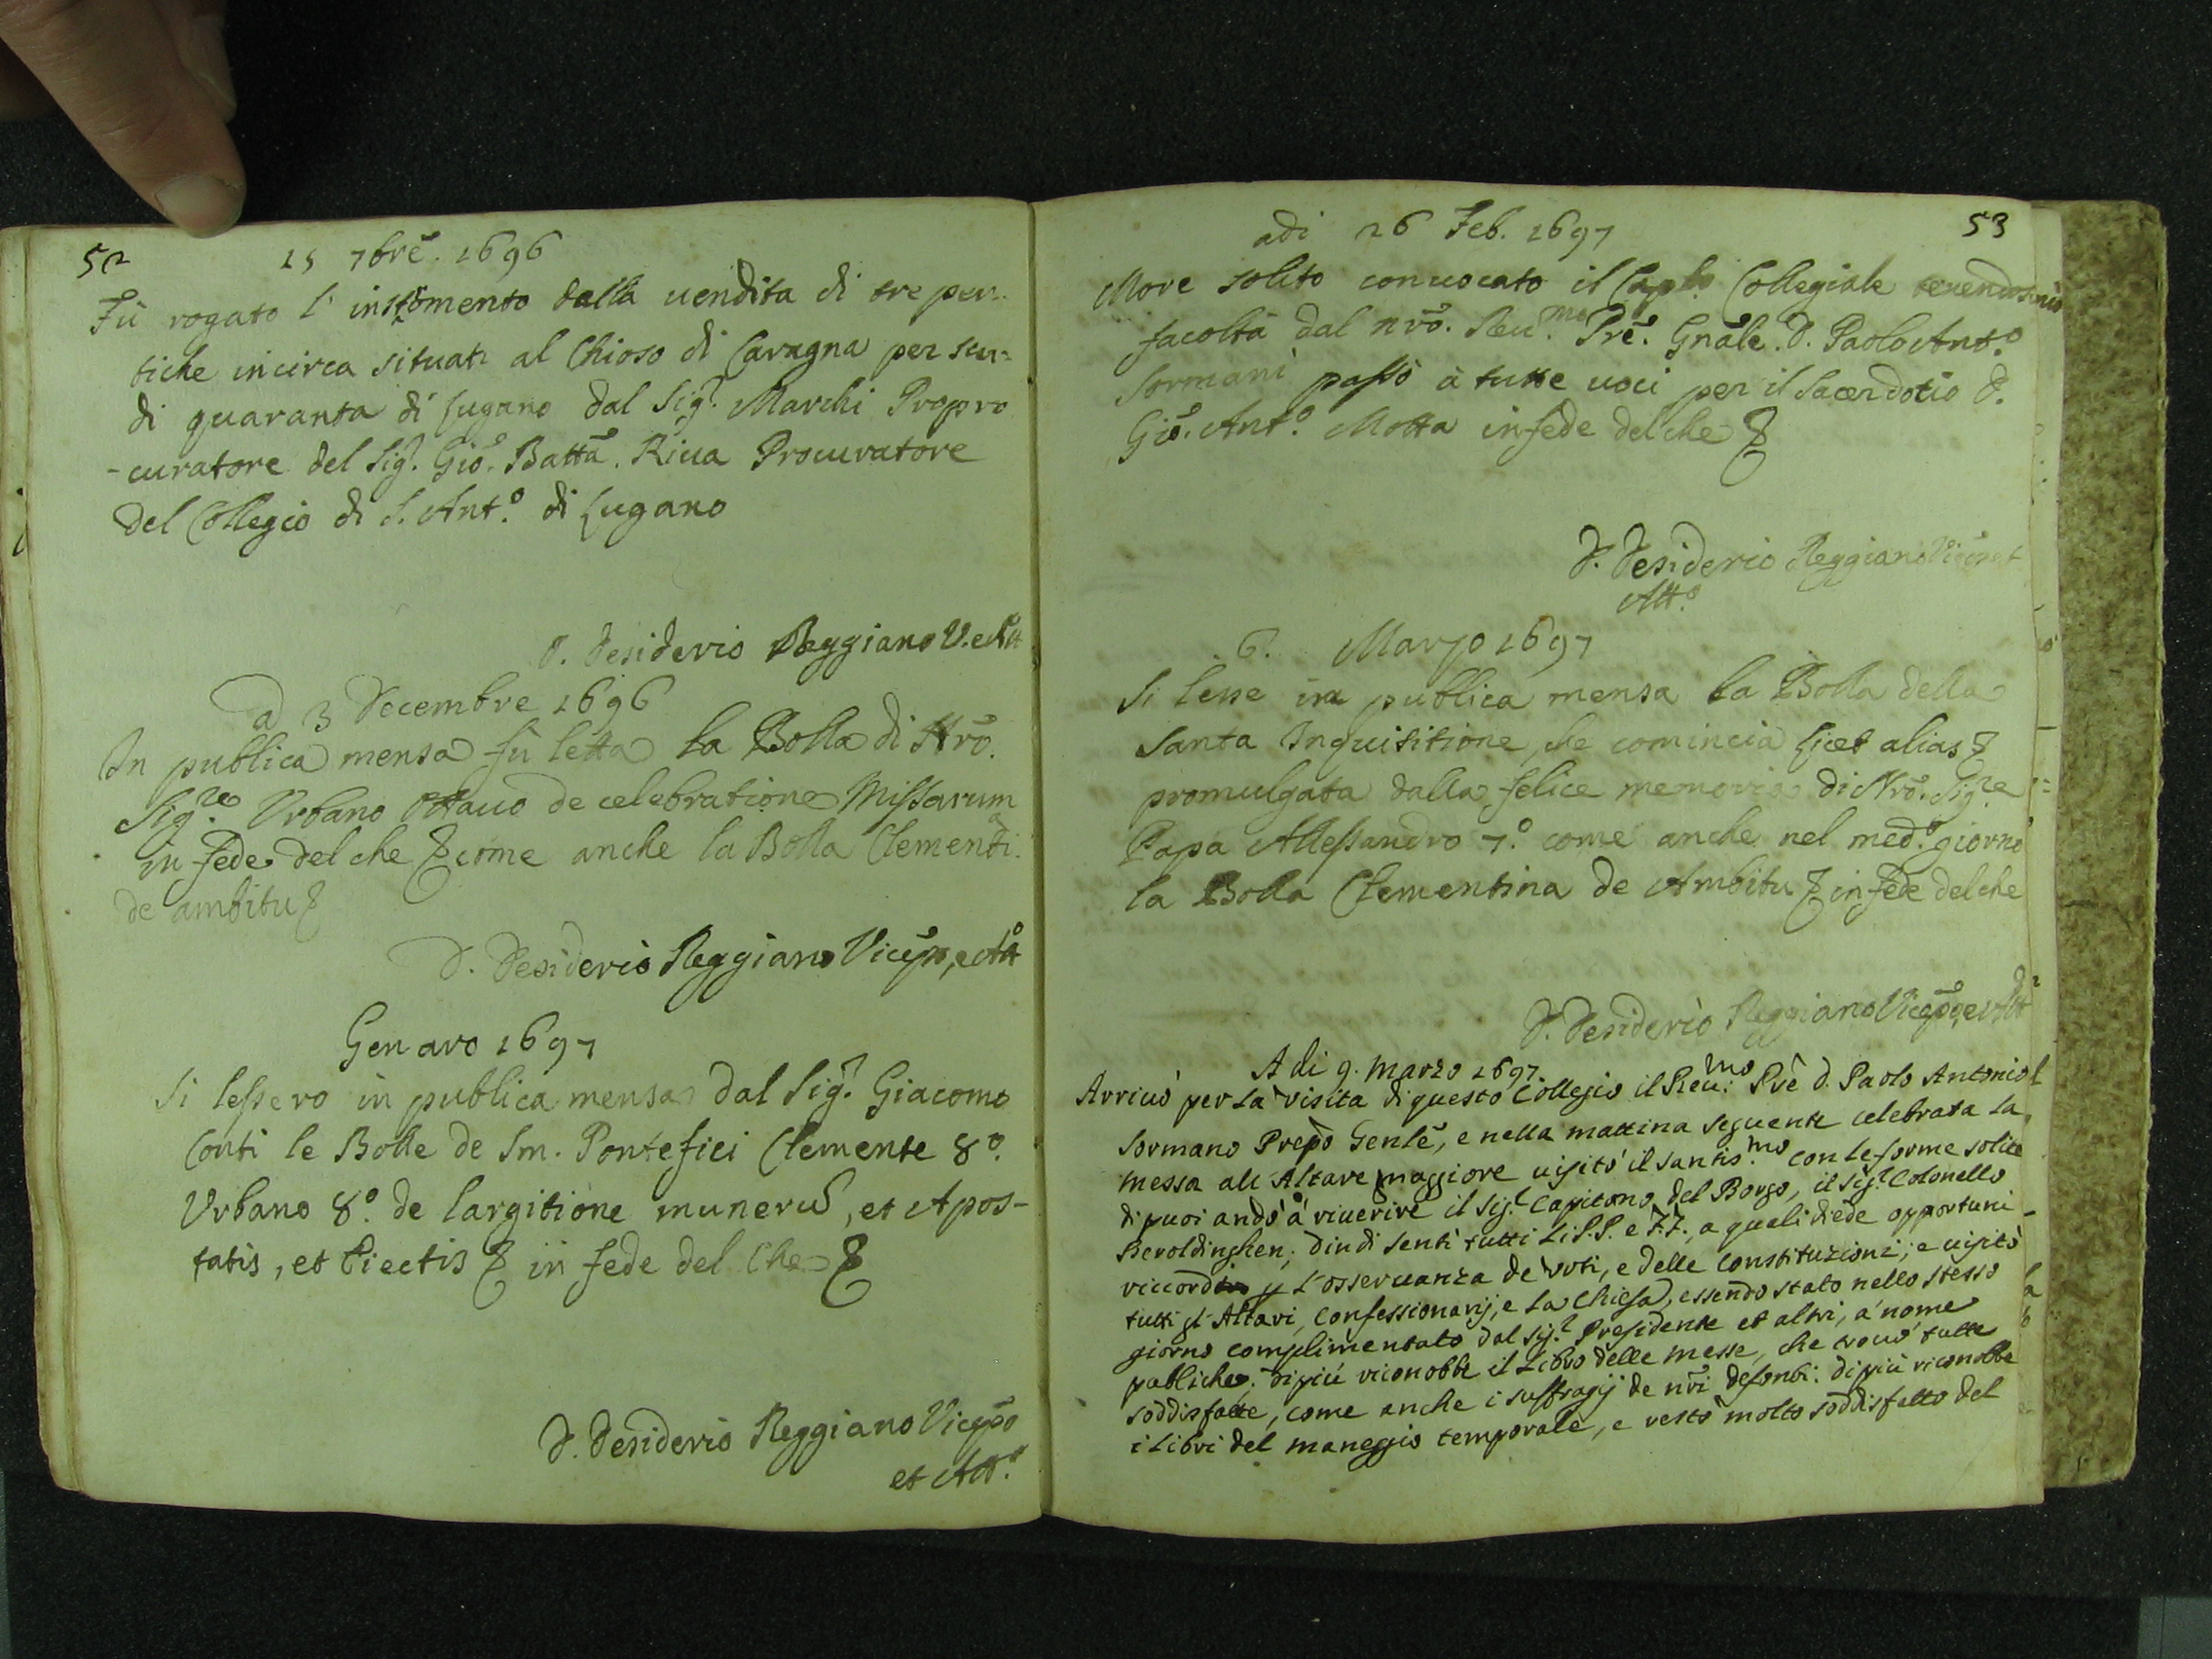 52
15 7brē. 1696
Fù rogato l' instromento dalla uendita di tre per-
tiche incirca situati al Chioso di Caragna per scu=
di quaranta di Lugano dal Sig.r Marchi Propro
-curatore del Sig.r Gio. Battā. Riua Procuratore
del Collegio di S. Ant.o di Lugano
D. Desiderio Reggiano V. e Att
a 3 Decembre 1696
In publica mensa fù letta la Bolla di Nrō.
Sig.re Vrbano Ottauo de celebratione Missarum
in fede del che & come anche la Bolla Clementi.a
de ambitu &
D. Desiderio Reggiano Vicepō, e Att
Genaro 1697
Si lessero in publica mensa dal Sig.r Giacomo
Conti le Bolle de Sm. Pontefici Clemente 8.o
Vrbano 8.o de largitione munerū, et Apos-
tatis, et Eiectis & in fede del che &
D. Desiderio Reggiano Vicepō
et Att.o
53
adi 26 Feb. 1697
More solito conuocato il Cap.lo Collegiale
facoltà dal nrō. Reu.mo Prē. Gnāle. D. Paolo Ant.o
Sormani passò à tutte uoci per il Sacerdotio D.
Giō. Ant.o Motta in fede del che &
D. Desiderio Reggiano Vicepō et
Att.o
6. Marzo 1697
Si lesse in publica mensa la Bolla della
Santa Inquisitione, che comincia Licet alias &
promulgata dalla felice memoria di Nrō. Sig.re
Papa Allessandro 7.o come anche nel med.o giorno
la Bolla Clementina de Ambitu & in fede del che
D. Desiderio Reggiano Vicepō, e Att
A di 9. Marzo 1697.
Arriuò per la visita di questo Collegio il Reu.mo Prē D. Paolo Antonio
Sormano Prepō Genlē, e nella mattina seguente celebrata la
messa all' Altare maggiore uisitò il Santis.mo con le forme solite
di puoi andò à riuerire il Sig.r Capitano del Borgo, il Sig.r Colonello
Beroldinghen; dindi sentì tutti li P.P. e F.F., a quali diede opportuni
riccordi p L'osseruanza de voti, e delle Constituzioni; e uisitò
tutti gl' Altari, Confessionarij, e la Chiesa, essendo stato nello stesso
giorno complimentato dal Sig.r Presidente et altri, a nome
publiche. di più riconobbe il Libro delle messe, che trouò tutte
soddisfatte, come anche i suffragij de nrī defonti: di più riconobbe
i Libri del maneggio temporale, e restò molto soddisfatto del